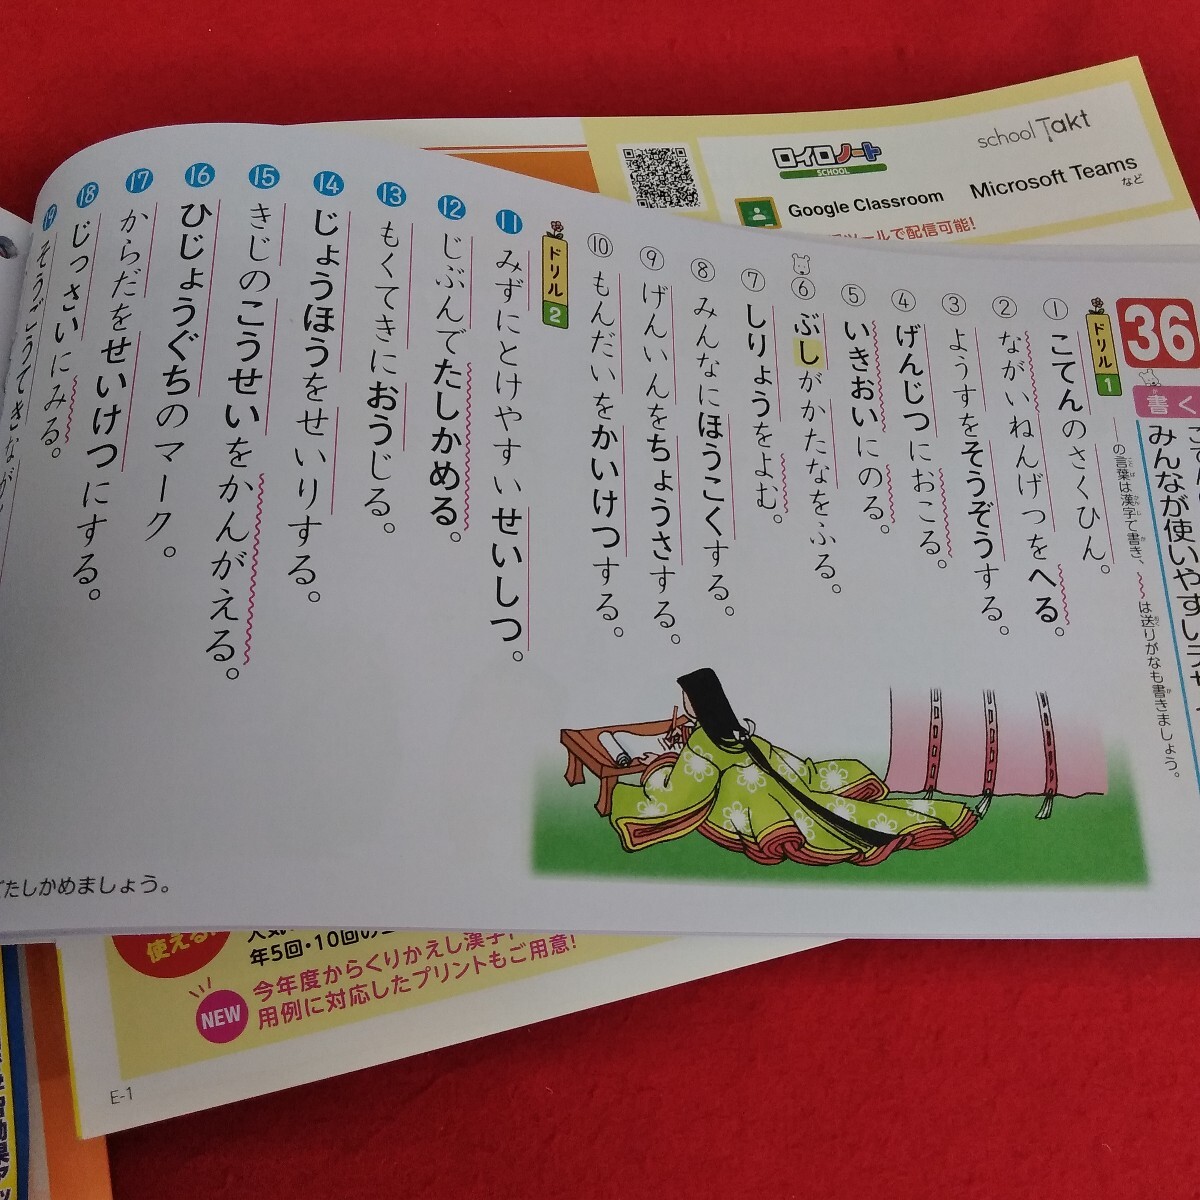 schoolTakt
ロイロノート
SCHOOL
Google Classroom
Microsoft Teams
など
ールで配信可能!
36
書く
みんなが使いやすいデザ
の言葉は漢字で書き、
は送りがなも書きましょう。
ドリル1
① こてんのさくひん。
② ながいねんげつをへる。
③ ようすをそうぞうする。
④ げんじつにおこる。
⑤ いきおいにのる。
⑥ ぶしがかたなをふる。
⑦ しりょうをよむ。
⑧ みんなにほうこくする。
⑨ げんいんをちょうさする。
⑩ もんだいをかいけつする。
ドリル2
⑪ みずにとけやすいせいしつ。
⑫ じぶんでたしかめる。
⑬ もくてきにおうじる。
⑭ じょうほうをせいりする。
⑮ きじのこうせいをかんがえる。
⑯ ひじょうぐちのマーク。
⑰ からだをせいけつにする。
⑱ じっさいにみる。
⑲
たしかめましょう。
使える!
年5回・10回の
NEW
今年度からくりかえし漢字
用例に対応したプリントもご用意!
E-1